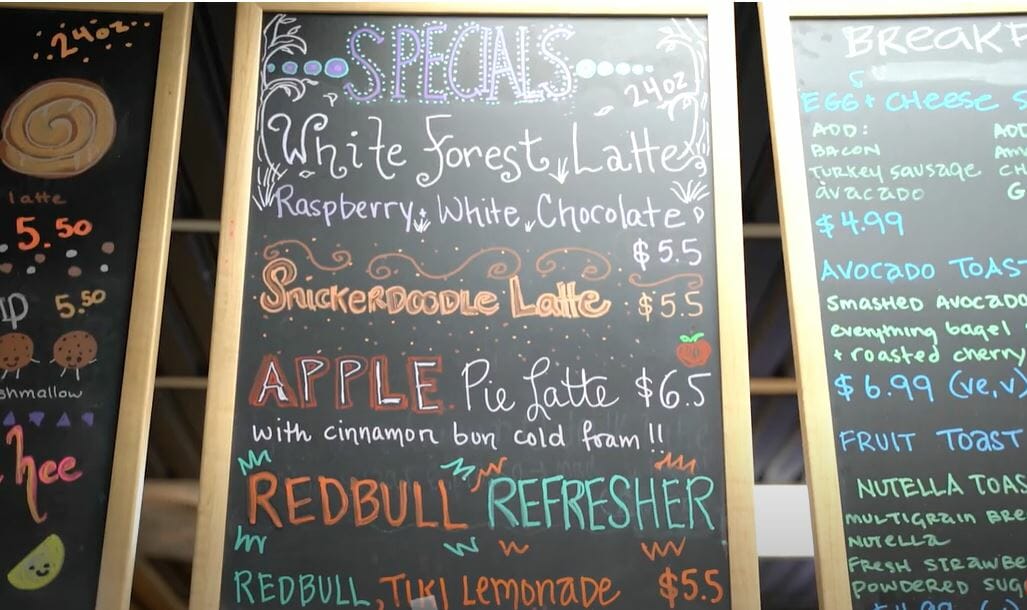 24oz
latte
5.50
5.50
shmallow
hee
SPECIALS
24oz
White Forest Latte
Raspberry + White Chocolate
$5.5
SNICKERDOODLE Latte $5.5
APPLE Pie Latte $6.5
with cinnamon bun cold foam!!
REDBULL REFRESHER
REDBULL, TIKI Lemonade $5.5
BREAKF
EGG + CHEESE S
ADD:
BACON
TURKEY SAUSAGE CH
avacado G
$4.99
AVOCADO TOAST
SMASHED AVOCADO
everything bagel
+ roasted cherry
$6.99 (ve,v)
FRUIT TOAST
NUTELLA TOAS
MULTIGRAIN BRE
NUTELLA
FRESH STRAWBE
POWDERED SUG